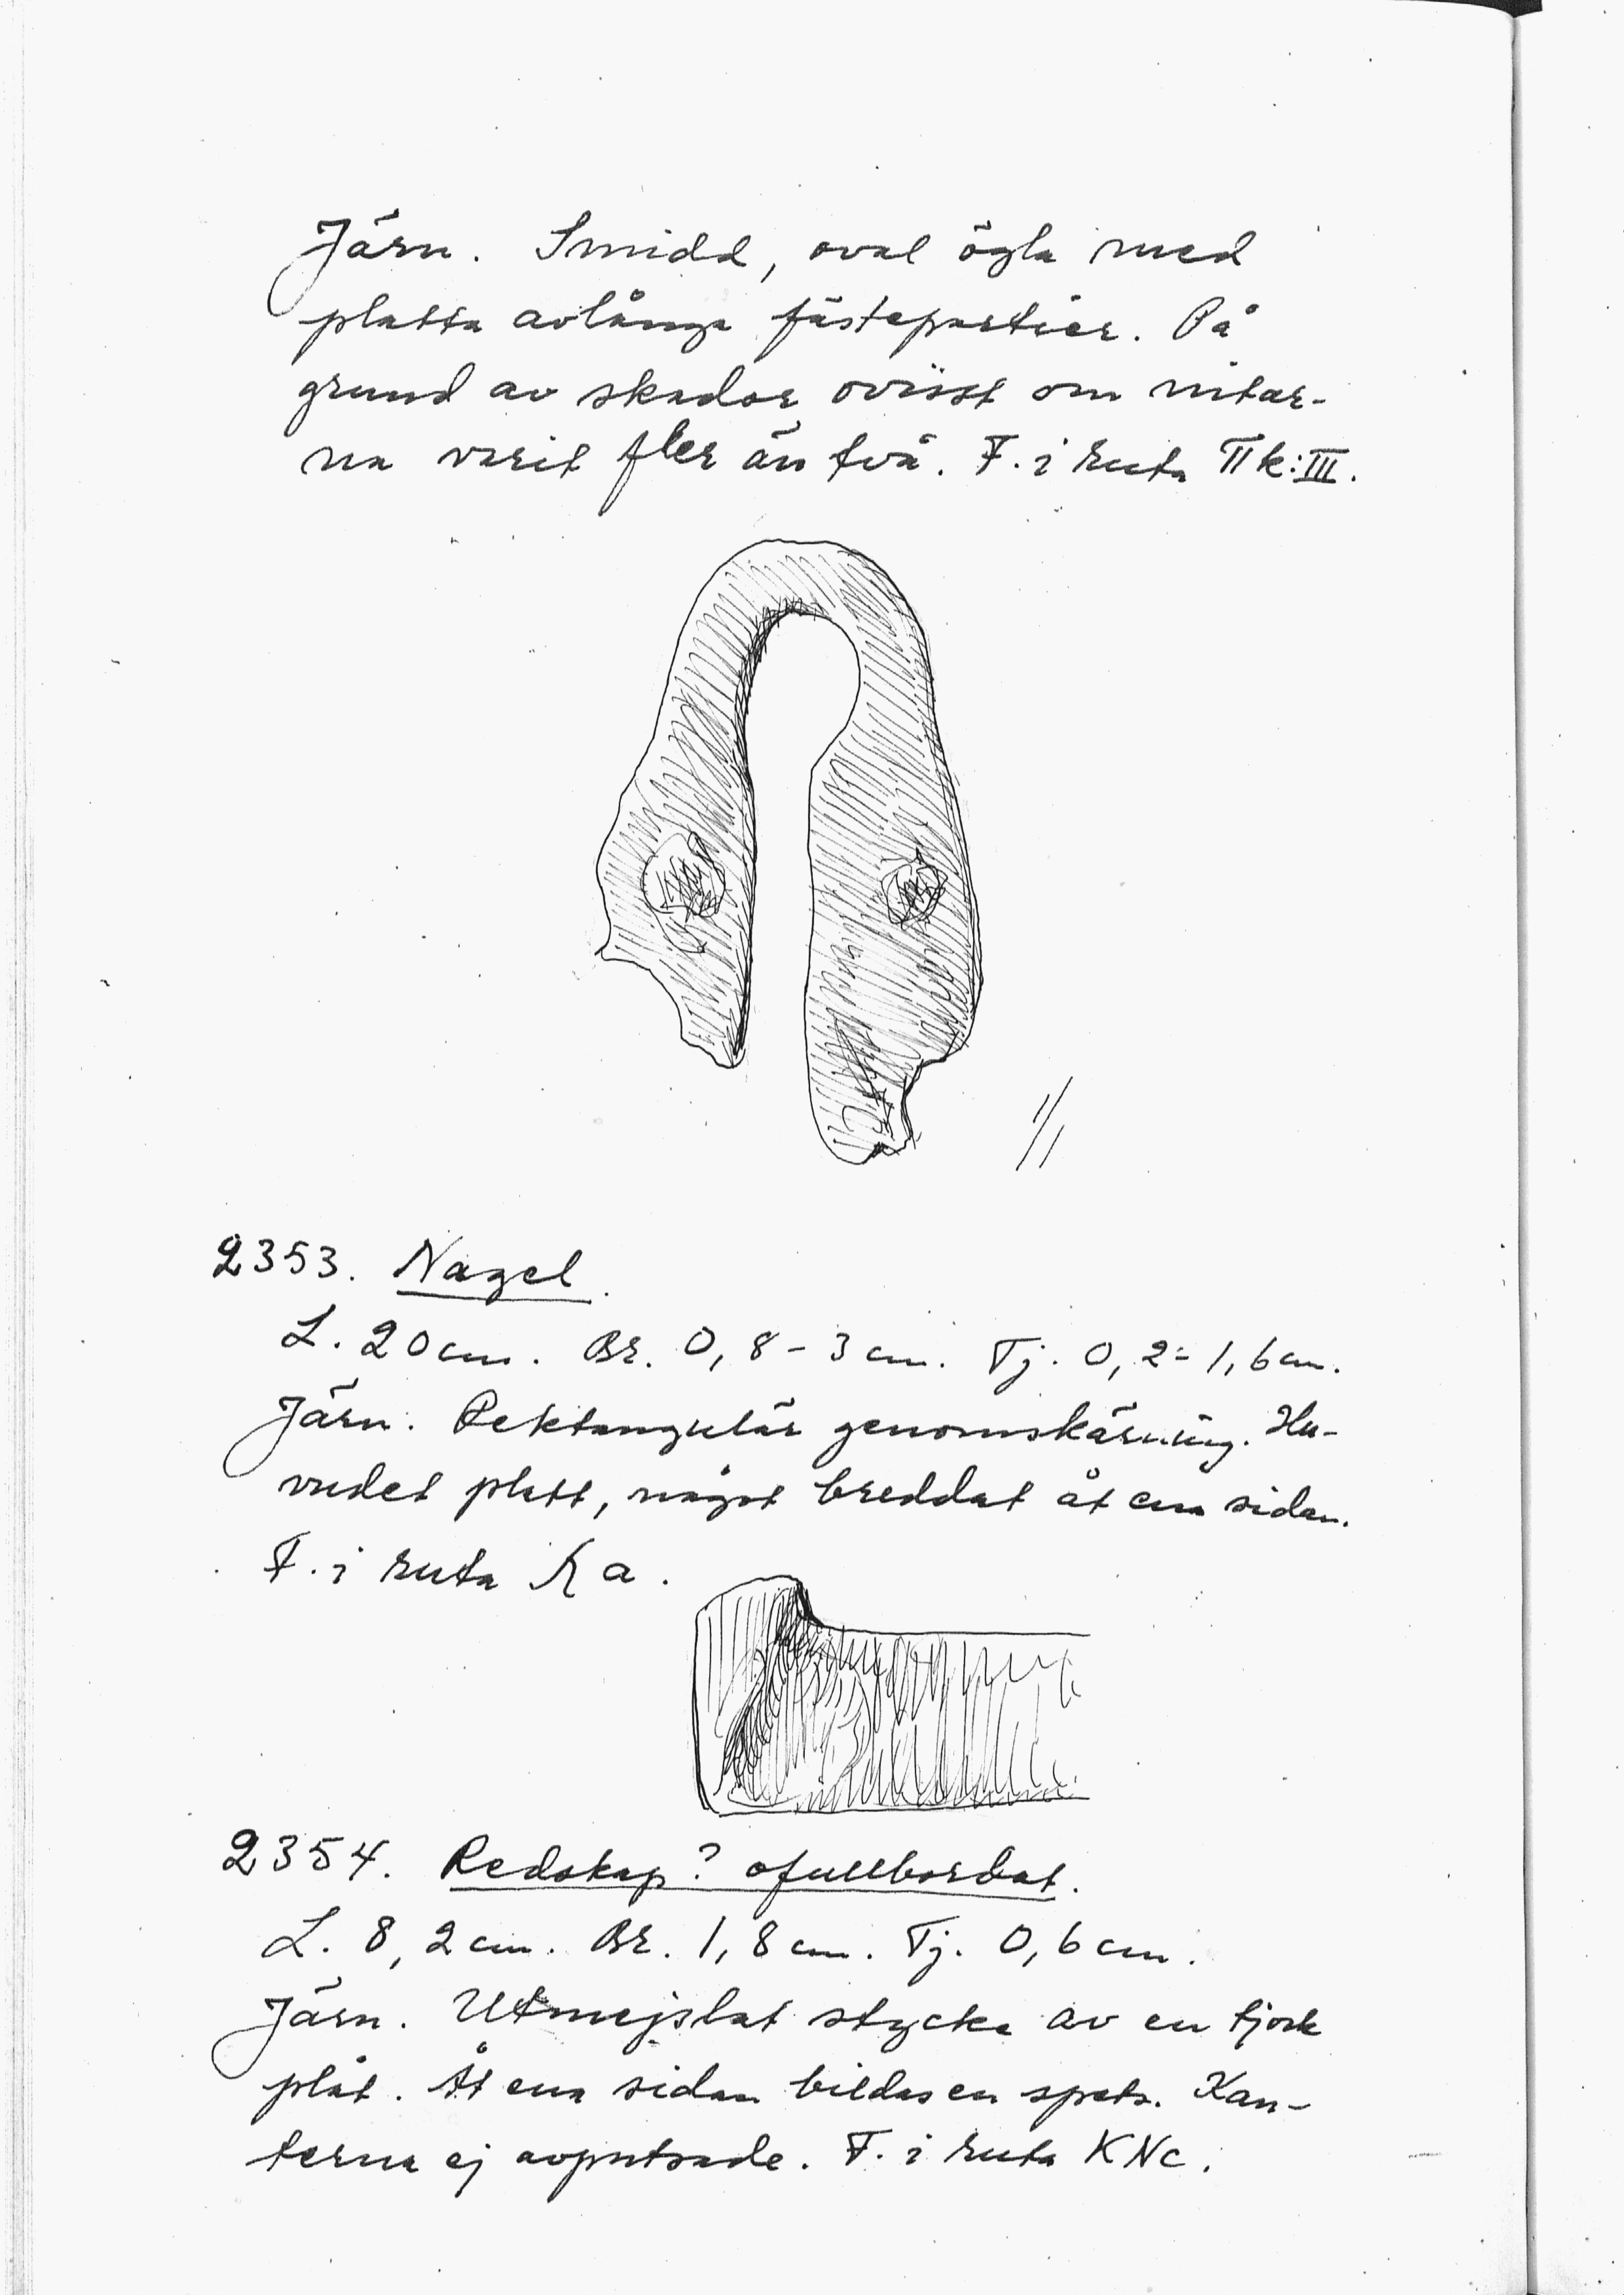 Järn. Smidd, oval ögla med
platta avlånga fästepartier. På
grund av skador ovisst om nitar-
na varit fler än två. F. i ruta TTk:III.
1/1
2353. Nagel.
L. 20 cm. Br. 0,8 - 3 cm. Tj. 0,2 - 1,6 cm.
Järn. Rektangulär genomskärning. Hu-
vudet platt, något breddat åt ena sidan.
F. i ruta Ka.
2354. Redskap? ofullbordat.
L. 8,2 cm. Br. 1,8 cm. Tj. 0,6 cm.
Järn. Utmejslat stycke av en tjock
plåt. Åt ena sidan bildas en spets. Kan-
terna ej avputsade. F. i ruta KNc.